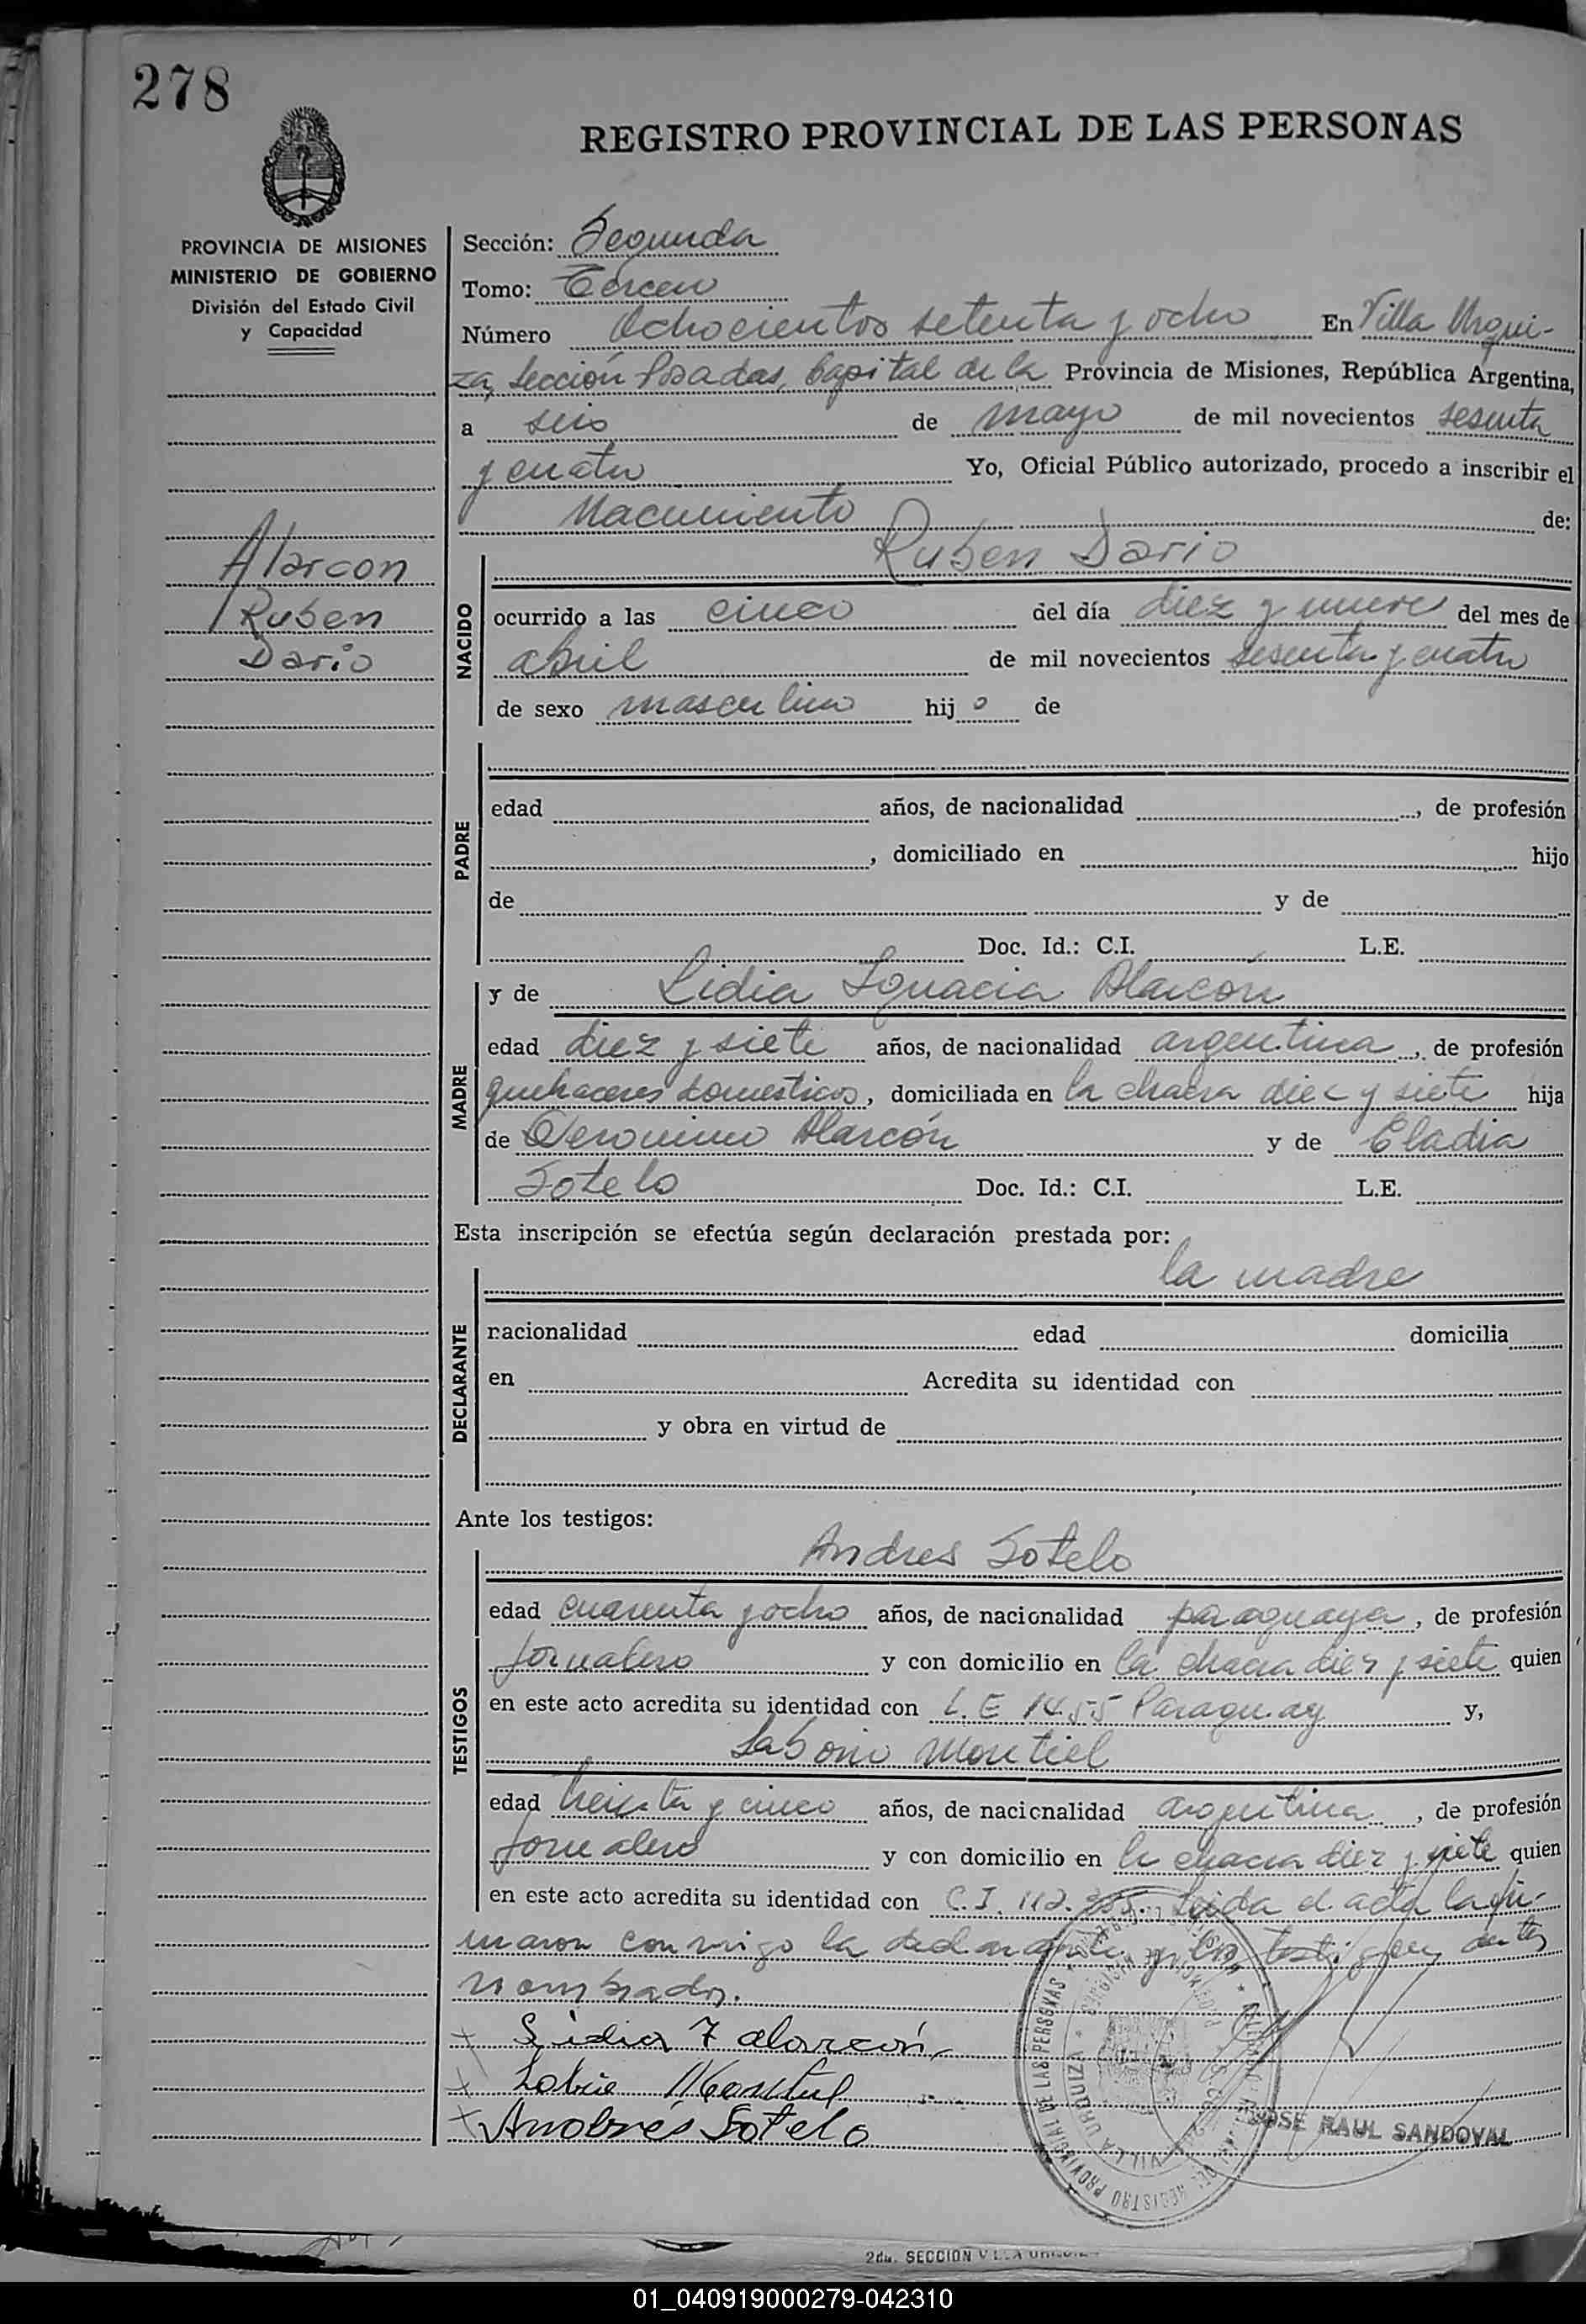 278
REGISTRO PROVINCIAL DE LAS PERSONAS
PROVINCIA DE MISIONES
MINISTERIO DE GOBIERNO
División del Estado Civil
y Capacidad
Alarcon
Ruben
Dario
Sección: Segunda
Tomo: Tercero
Número Ochocientos setenta y ocho En Villa Urqui-
za, Sección Posadas, Capital de la Provincia de Misiones, República Argentina,
a seis de mayo de mil novecientos sesenta
y cuatro Yo, Oficial Público autorizado, procedo a inscribir el
Nacimiento de:
NACIDO
Ruben Dario
ocurrido a las cinco del día diez y nueve del mes de
abril de mil novecientos sesenta y cuatro
de sexo masculino hijo de
PADRE
edad años, de nacionalidad , de profesión
, domiciliado en hijo
de y de
Doc. Id.: C.I. L.E.
MADRE
y de Lidia Ignacia Alarcón
edad diez y siete años, de nacionalidad argentina, de profesión
quehaceres domesticos, domiciliada en la chacra diez y siete hija
de Geronimo Alarcón y de Eladia
Sotelo Doc. Id.: C.I. L.E.
Esta inscripción se efectúa según declaración prestada por:
la madre
DECLARANTE
nacionalidad edad domicilia
en Acredita su identidad con
y obra en virtud de
Ante los testigos:
TESTIGOS
Andres Sotelo
edad cuarenta y ocho años, de nacionalidad paraguaya, de profesión
jornalero y con domicilio en la chacra diez y siete quien
en este acto acredita su identidad con L.E 14.55 Paraguay y,
Montiel
edad treinta y cinco años, de nacionalidad argentina, de profesión
jornalero y con domicilio en la chacra diez y siete quien
en este acto acredita su identidad con C.I. Leida el acta la fir-
maron conmigo la declarante y los testigos antes
nombrados.
Lidia I Alarcón
Andrés Sotelo
REGISTRO PROVINCIAL DE LAS PERSONAS
VILLA URQUIZA
JOSE RAUL SANDOVAL
2da. SECCION VILLA
01_040919000279-042310